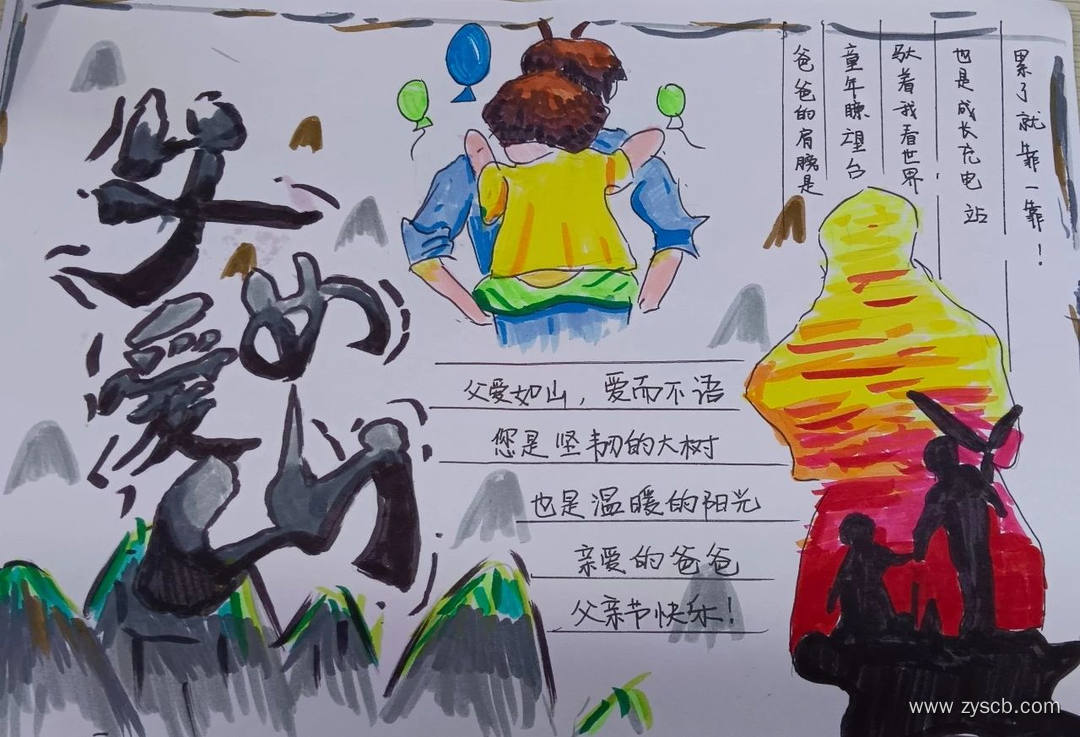 父爱如山
爸爸的肩膀是
童年瞭望台
驮着我看世界
也是成长充电站
累了就靠一靠！
父爱如山，爱而不语
您是坚韧的大树
也是温暖的阳光
亲爱的爸爸
父亲节快乐！
www.zyscb.com